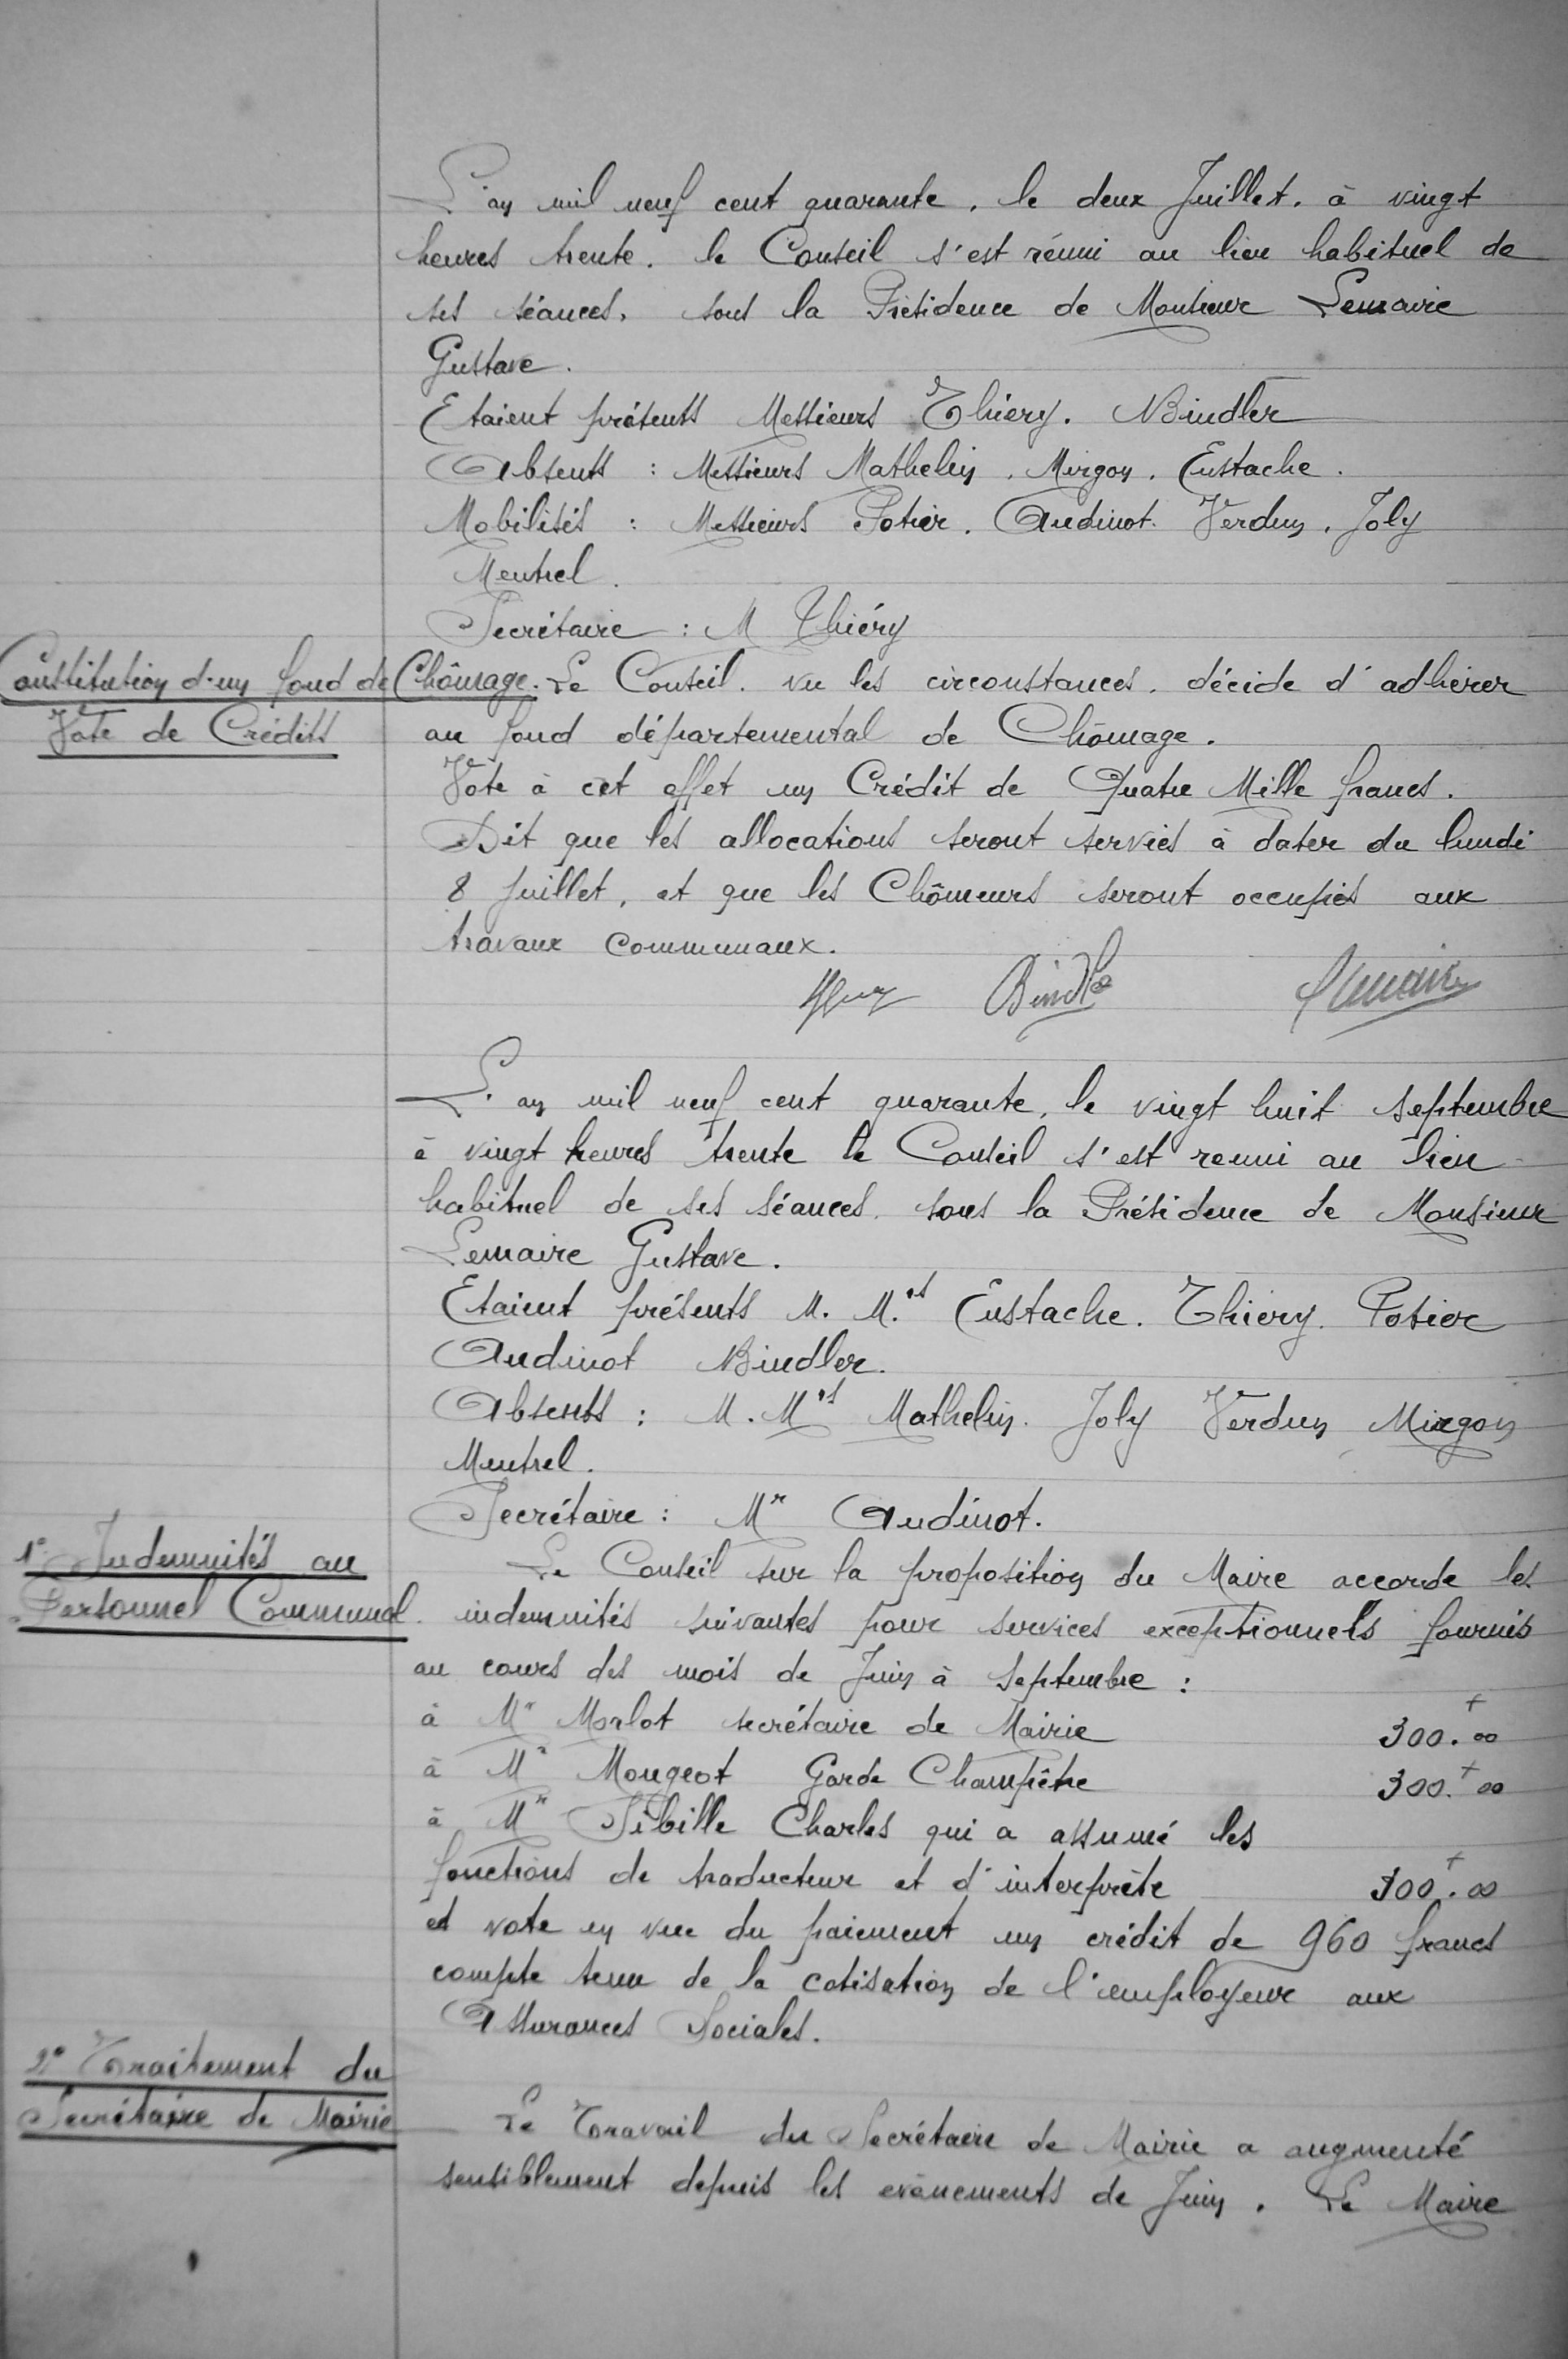 L'an mil neuf cent quarante, le deux Juillet, à vingt
heures trente, le Conseil s'est réuni au lieu habituel de
ses séances, sous la Présidence de Monsieur Lemaire
Gustave.
Etaient présents Messieurs Thiery. Bindler
Absents : Messieurs Mathelin. Mirgon. Eustache.
Mobilisés : Messieurs Potier. Audinot. Verdun. Joly
Mentrel.
Secrétaire : M Thiéry
Constitution d'un fond de Chômage. Le Conseil, vu les circonstances, décide d'adhérer
Vote de Crédits
au fond départemental de Chômage.
Vote à cet effet un Crédit de Quatre Mille francs.
Dit que les allocations seront servies à dater du lundi
8 Juillet, et que les Chômeurs seront occupés aux
travaux communaux.
Bindler Lemaire
L'an mil neuf cent quarante, le vingt huit septembre
à vingt heures trente le Conseil s'est reuni au lieu
habituel de ses séances, sous la Présidence de Monsieur
Lemaire Gustave.
Etaient présents M. M.rs Eustache. Thiery. Potier
Audinot Bindler.
Absents : M. Mrs Mathelin. Joly Verdun Mirgon
Mentrel.
Secrétaire : Mr Audinot.
1° Indemnités au
Personnel Communal.
Le Conseil sur la proposition du Maire accorde les
indemnités suivantes pour services exceptionnels fournis
au cours des mois de Juin à Septembre :
à Mr Morlot secrétaire de Mairie 300.f00
à Mr Mougeot Garde Champêtre 300.f00
à Mr Sibille Charles qui a assumé les
fonctions de traducteur et d'interprète 300.f00
et vote en vue du paiement un crédit de 960 francs
compte tenu de la cotisation de l'employeur aux
Assurances Sociales.
2° Traitement du
Secrétaire de Mairie
Le Travail du Secrétaire de Mairie a augmenté
sensiblement depuis les evènements de Juin. Le Maire